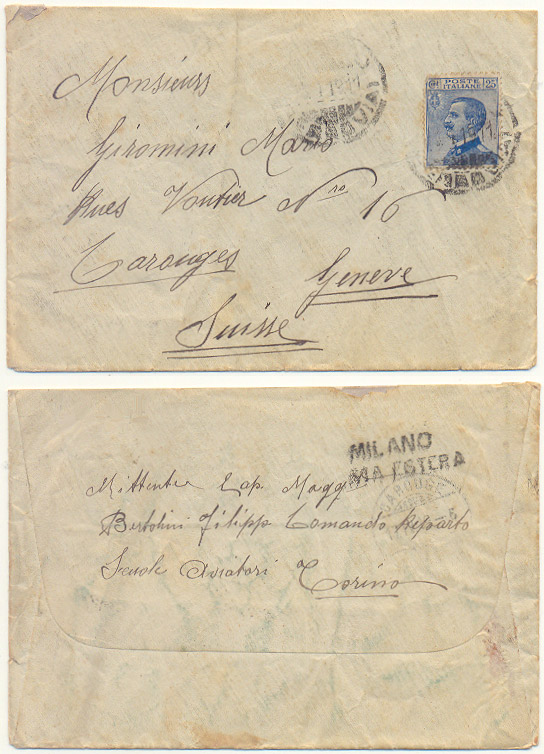 Monsieurs
Giromini Mario
Rues Voutier N.ro 16
Carouges Geneve
Suisse
POSTE
ITALIANE
25
MILANO
MA ESTERA
CAROUGE
Mittente Cap. Magg
Bertolini Filippo Comando Reparto
Scuole Aviatori Torino